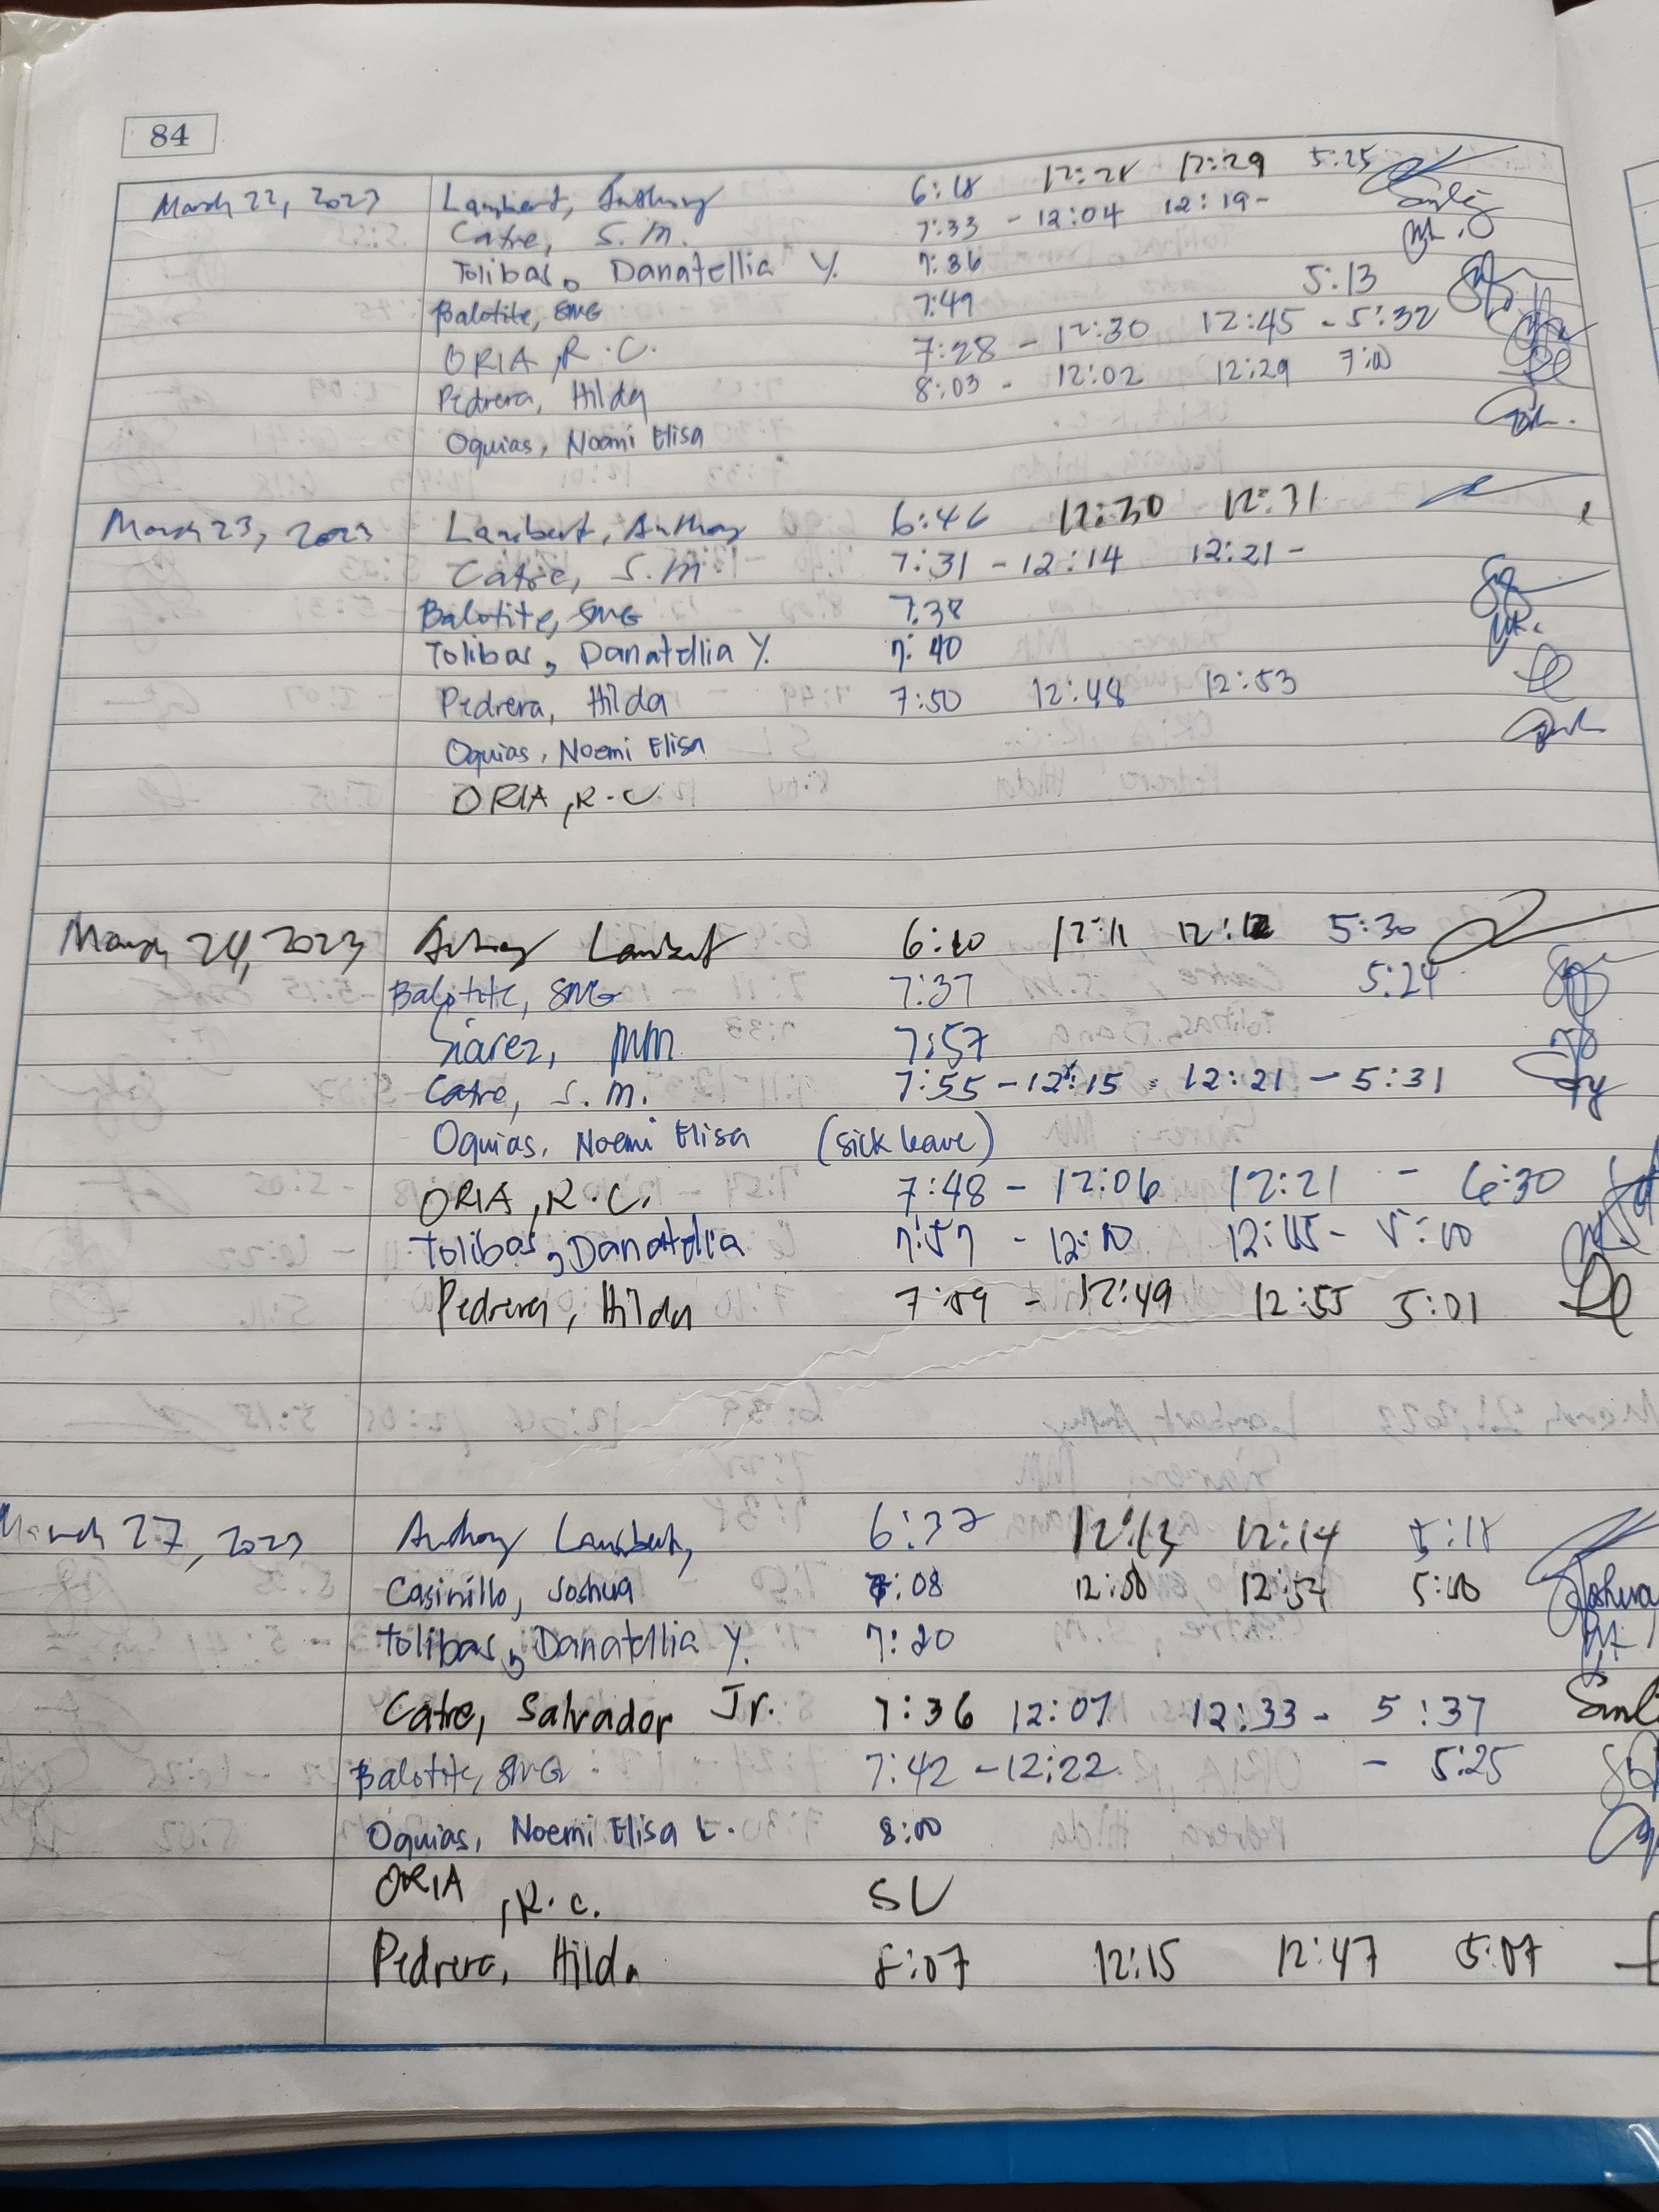 84
March 22, 2023 Lambert, Anthony 6:18 12:28 12:29 5:25
Catre, S.M. 7:33 - 12:04 12:19 -
Tolibas, Danatellia Y. 7:36
Balotite, SMG 7:49 5:13
ORIA, R.C. 7:28 - 12:30 12:45 - 5:32
Pedrera, Hilda 8:03 - 12:02 12:29 7:00
Oquias, Noemi Elisa
March 23, 2023 Lambert, Anthony 6:46 12:30 12:31
Catre, S.M. 7:31 - 12:14 12:21 -
Balotite, SMG 7:38
Tolibas, Danatellia Y. 7:40
Pedrera, Hilda 7:50 12:48 12:53
Oquias, Noemi Elisa
ORIA, R.C.
March 24, 2023 Anthony Lambert 6:10 12:11 12:12 5:30
Balotite, SMG 7:37 5:24
Siarez, MM 7:57
Catre, S.M. 7:55 - 12:15 - 12:21 - 5:31
Oquias, Noemi Elisa (sick leave)
ORIA, R.C. 7:48 - 12:06 12:21 - 6:30
Tolibas, Danatellia 7:57 - 12:10 12:15 - 5:00
Pedrera, Hilda 7:59 - 12:49 12:55 5:01
March 27, 2023 Anthony Lambert, 6:37 12:13 12:14 5:18
Casinillo, Joshua 7:08 12:50 12:54 5:00 Joshua
Tolibas, Danatellia Y. 7:20
Catre, Salvador Jr. 7:36 12:07 12:33 - 5:37
Balotite, SMG 7:42 - 12:22 - 5:25
Oquias, Noemi Elisa L. 8:00
ORIA, R.C. SL
Pedrera, Hilda 8:07 12:15 12:47 5:07